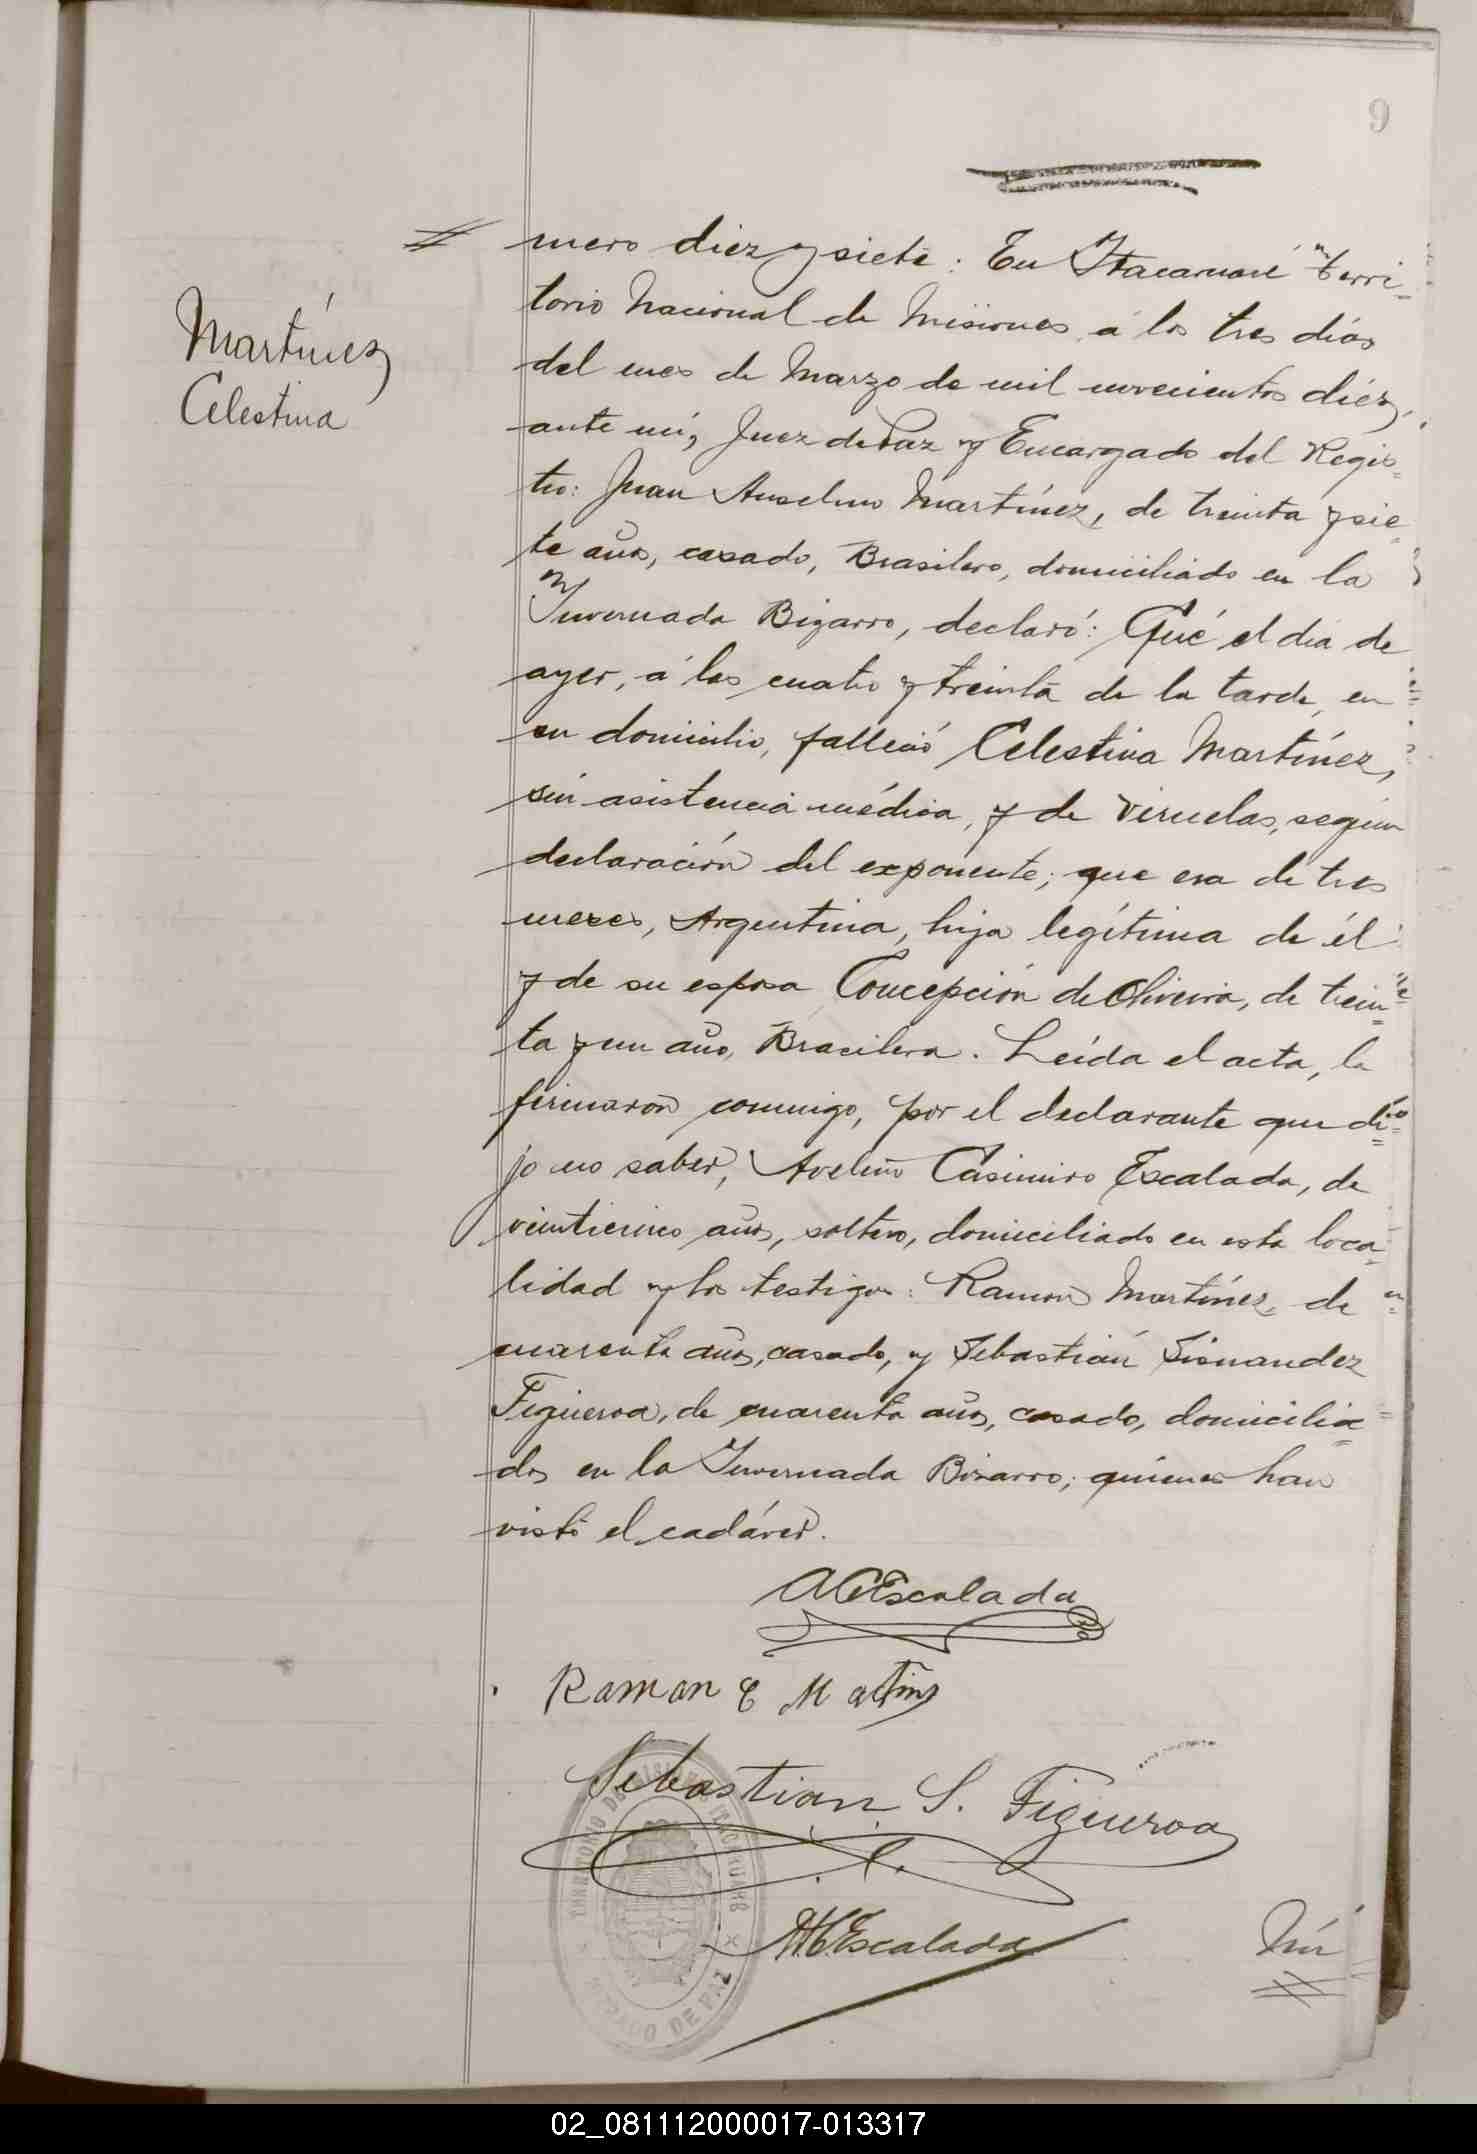 9
mero diez y siete: En Itacaruaré "terri=
Martínez
Celestina
torio Nacional de Misiones, á los tres días
del mes de Marzo de mil novecientos diéz,
ante mí, Juez de Paz y Encargado del Regis=
tro: Juan Anselmo Martínez, de treinta y sie=
te años, casado, Brasilero, domiciliado en la
Invernada Bizarro, declaró: Qué el día de
ayer, á las cuatro y treinta de la tarde, en
su domicilio, falleció Celestina Martínez,
sin asistencia médica, y de viruelas, según
declaración del exponente; que era de tres
meses, Argentina, hija legítima de él
y de su esposa Concepción de Oliveira, de trein=
ta y un año, Brasilera. Leída el acta, la
firmaron conmigo, por el declarante que di=
jo no saber, Avelino Casimiro Escalada, de
veinticinco años, soltero, domiciliado en esta loca=
lidad y los testigos: Ramón Martínez, de
cuarenta años, casado, y Sebastián Sisnandez
Figueroa, de cuarenta años, casado, domicilia=
dos en la Invernada Bizarro; quienes han
visto el cadáver.
A C Escalada
Ramon E Martinz
Sebastian S. Figueroa
Escalada
Nú
TERRITORIO DE MISIONES ITACARUARE
JUZGADO DE PAZ
02_081112000017-013317